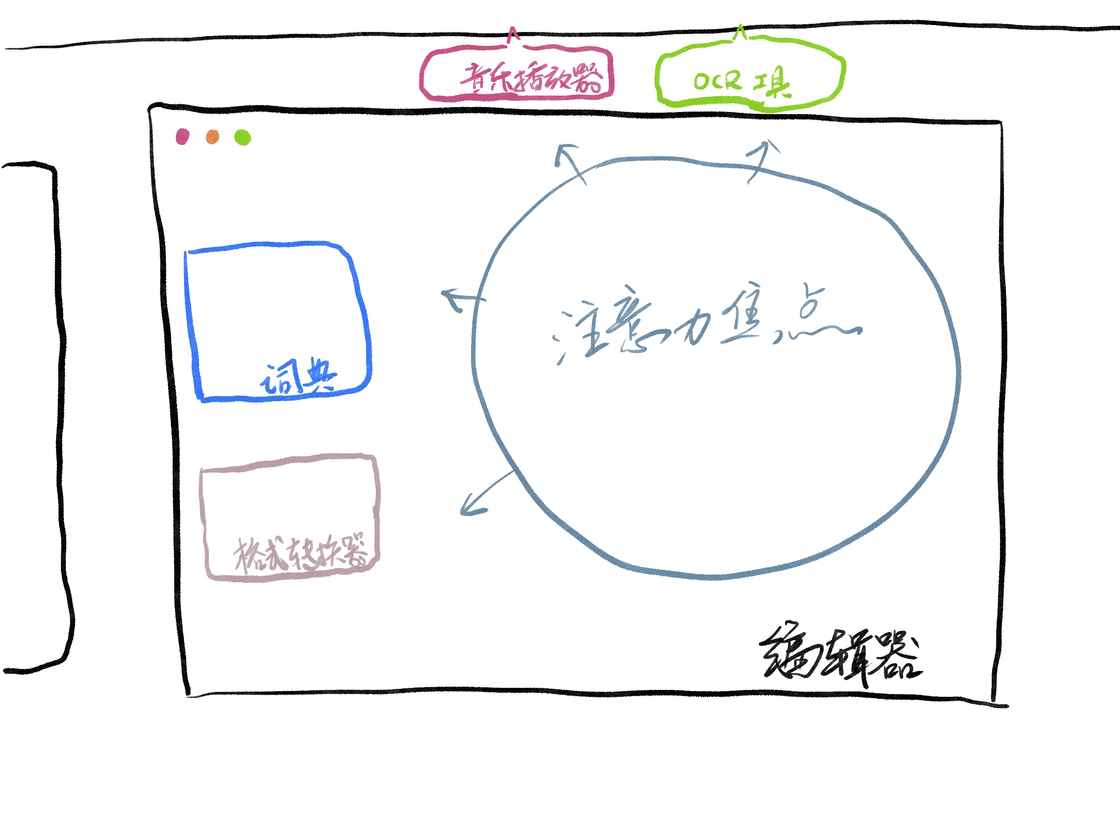 音乐播放器
OCR 工具
注意力焦点
词典
格式转换器
编辑器